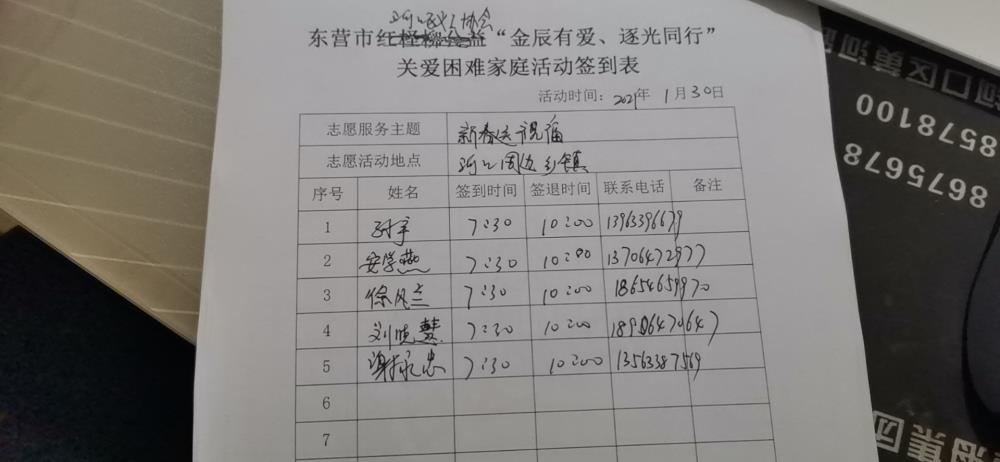 河口义工协会
东营市红柽柳公益“金辰有爱、逐光同行”
关爱困难家庭活动签到表
活动时间：2021年 1月30日
志愿服务主题 新春送祝福
志愿活动地点 河口周边乡镇
序号 姓名 签到时间 签退时间 联系电话 备注
1 7:30 10:00 13963396679
2 安学燕 7:30 10:00 13706472977
3 徐凤兰 7:30 10:00 18654659970
4 刘晓慧 7:30 10:00 18906470647
5 谢永忠 7:30 10:00 13563387569
6
7
河口区黄河
8578100
8675678
集团